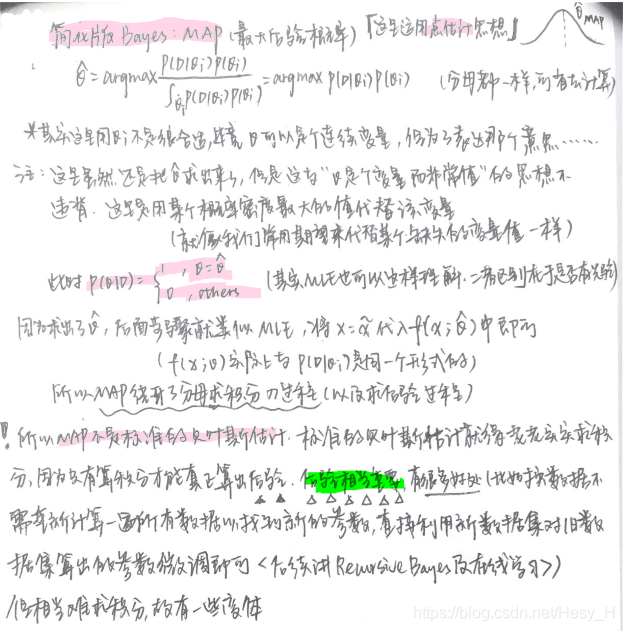 简化版Bayes: MAP (最大后验概率) 「这里运用点估计思想」 θ̂MAP
θ̂ = argmax p(D|θi)p(θi) / ∫θi p(D|θi)p(θi) = argmax p(D|θi)p(θi) (分母都一样,可省去计算)
※其实这里用θi不是很合适,毕竟θ可以是个连续变量,但为了表达那个意思……
注:这里虽然还是把θ̂求出来了,但是这与“θ是个变量而非常值”的思想不
违背.这里是用某个概率密度最大的值代替该变量
(就像我们常用期望来代替某个缺失的变量值一样)
此时 p(θ|D) = { 1 , θ=θ̂ (其实MLE也可以这样理解.二者区别在于是否有先验)
0 , others
因为求出了θ̂,后面步骤就类似MLE,将x=x̃代入f(x;θ̂)中即可
(f(x;θ)实际上与p(D|θi)是同一个形式的)
所以MAP绕开了分母求积分的过程(以及求后验过程)
! 所以MAP不是标准的贝叶斯估计.标准的贝叶斯估计就得老老实实求积
分,因为只有算积分才能真正算出后验.后验相当重要,有很多好处(比如换数据不
需重新计算一遍所有数据以找到新的参数,直接利用新数据集对旧数
据集算出的参数微调即可<后续讲Recursive Bayes及在线学习>)
但相当难求积分,故有一些变体
https://blog.csdn.net/Hesy_H